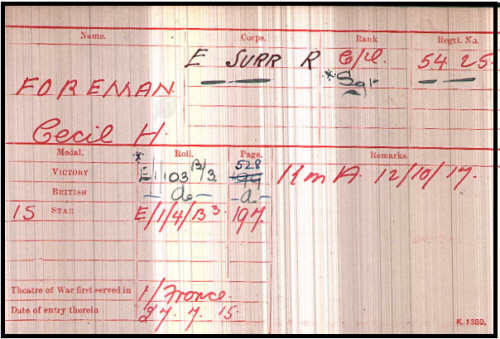 Name. Corps. Rank Regtl. No.
E SURR R C/Sl. 5425
FOREMAN * Sgt
Cecil H.
Medal. Roll. Page. Remarks
VICTORY * E/1/103 B/3 528 K in A. 12/10/17.
BRITISH — do — — do —
15 STAR E/1/4/B3. 197
Theatre of War first served in 1/France.
Date of entry therein 27.7.15.
K. 1380.